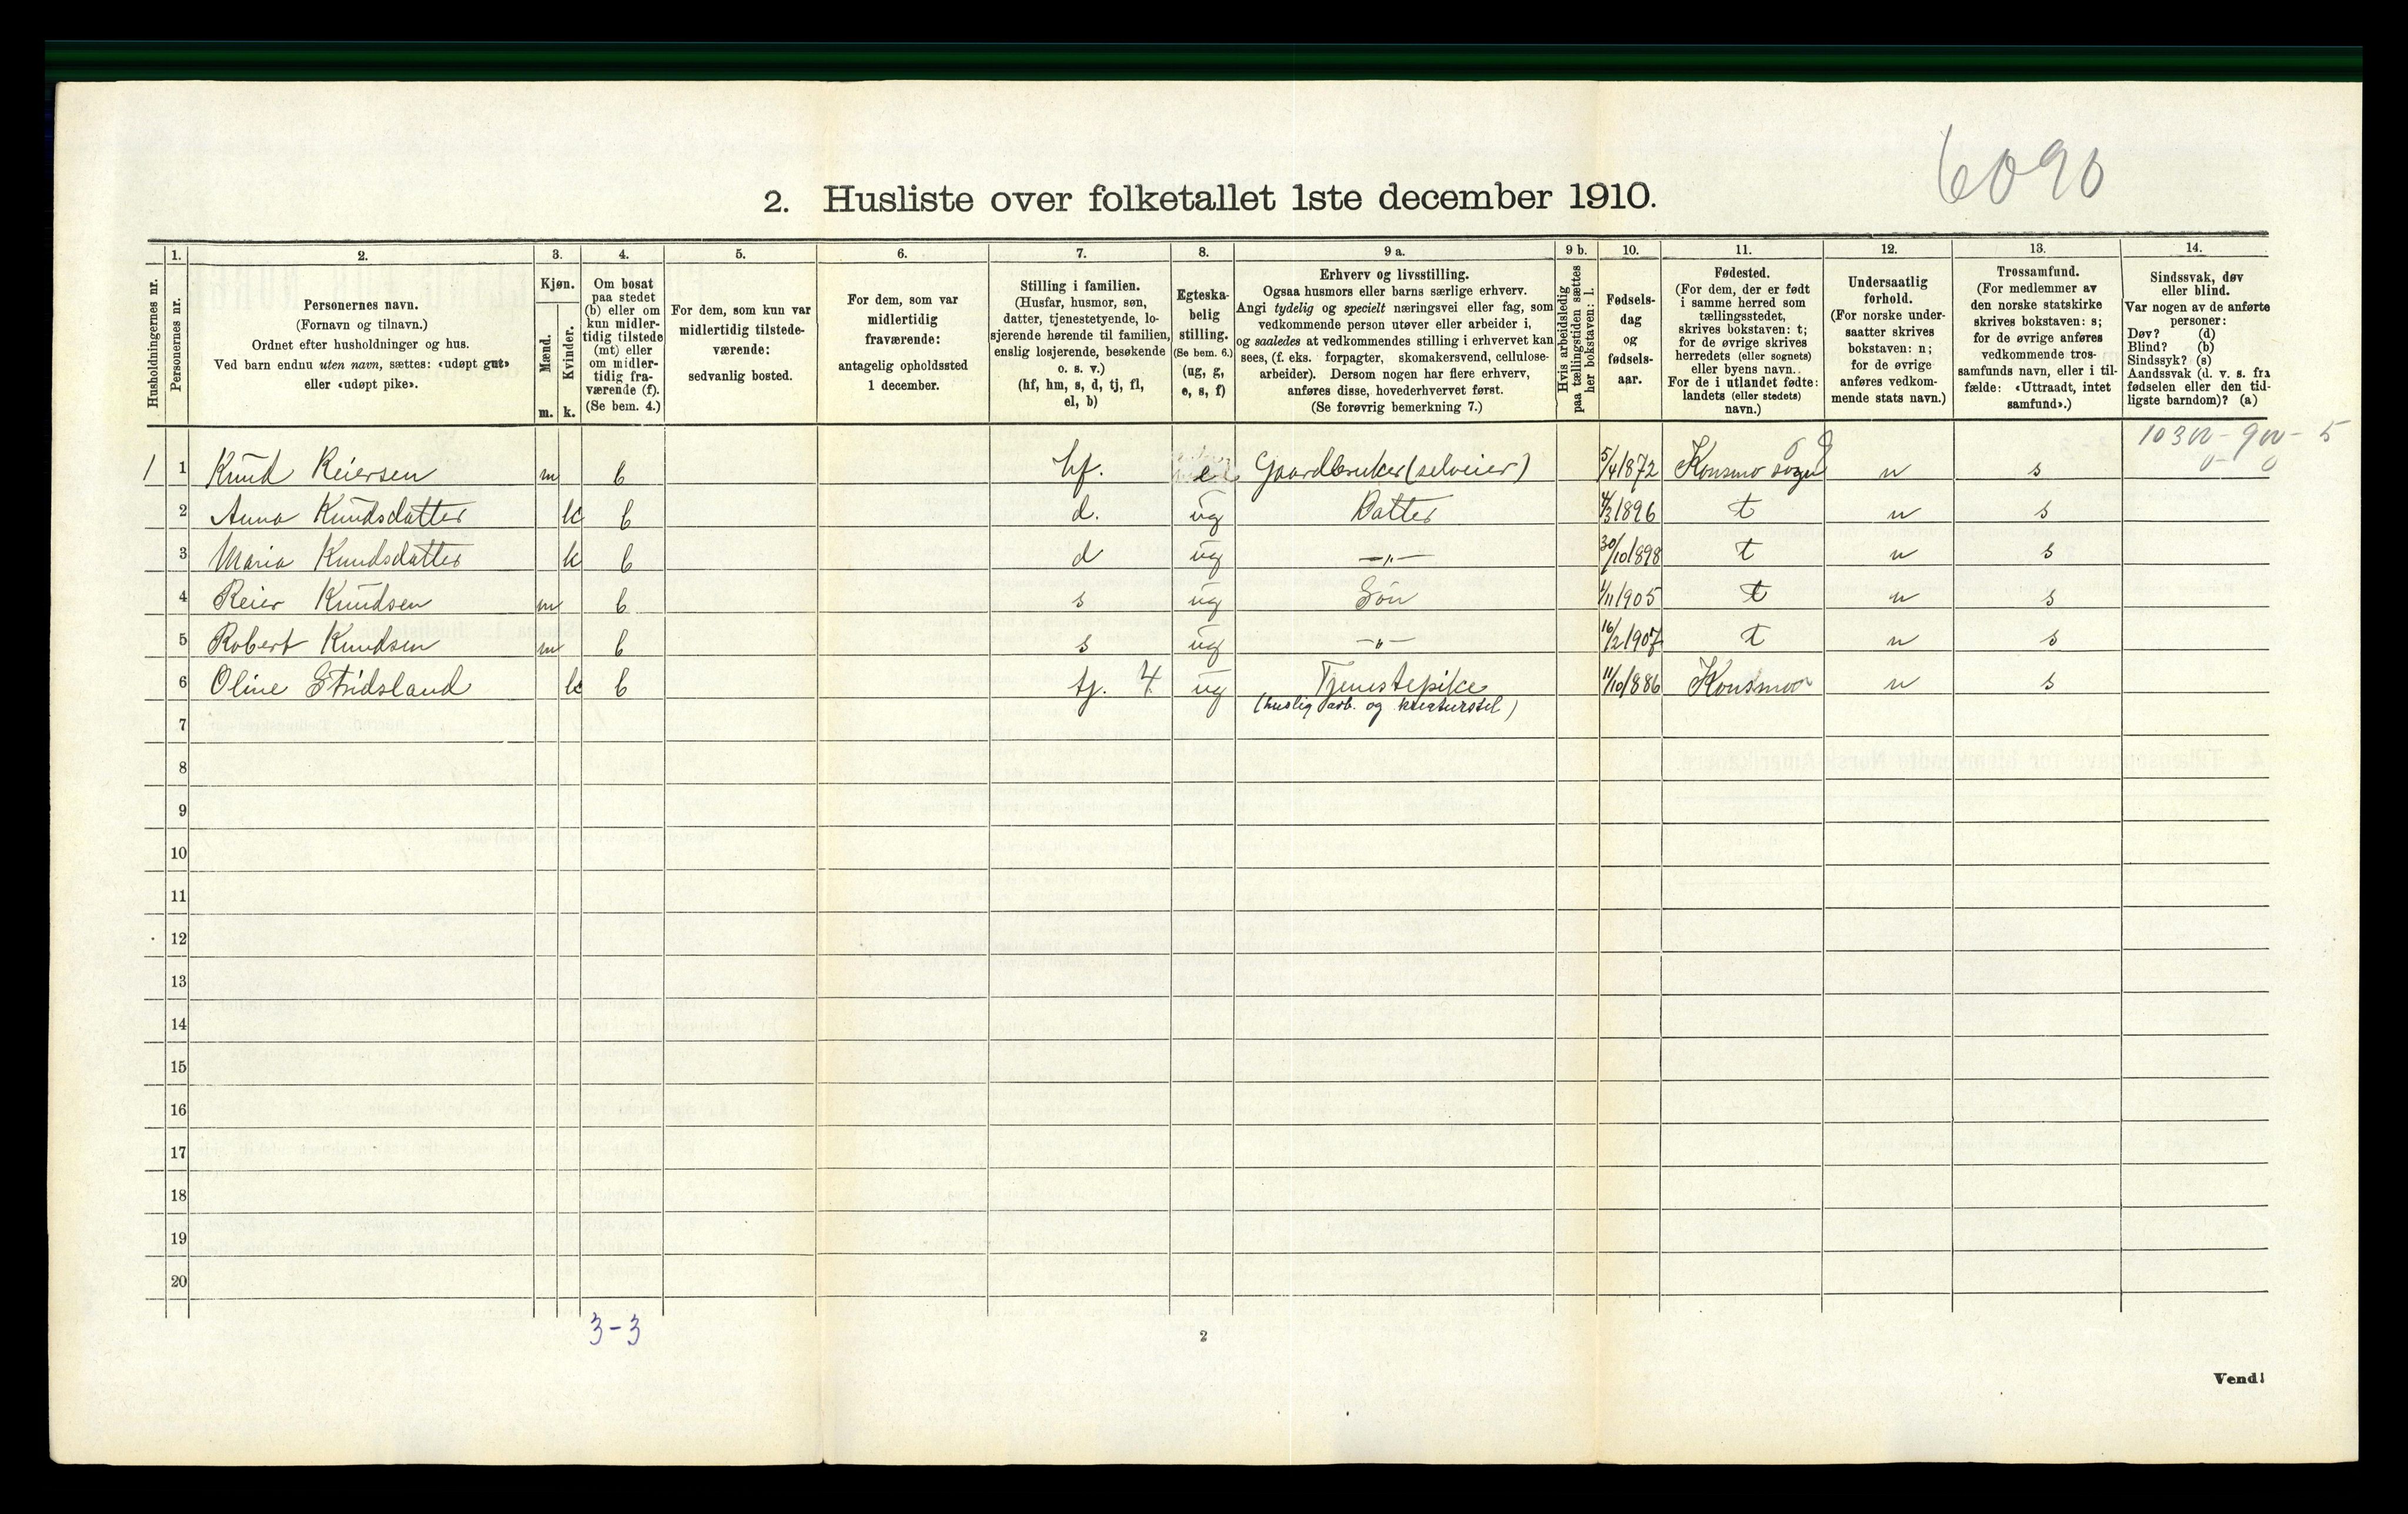 6090
2. Husliste over folketallet 1ste december 1910.
Husholdningernes nr.
1.
Personernes nr.
2.
Personernes navn.
(Fornavn og tilnavn.)
Ordnet efter husholdninger og hus.
Ved barn endnu uten navn, sættes: «udøpt gut»
eller «udøpt pike».
3.
Kjøn.
Mænd.
m.
Kvinder.
k.
4.
Om bosat
paa stedet
(b) eller om
kun midler-
tidig tilstede
(mt) eller
om midler-
tidig fra-
værende (f).
(Se bem. 4.)
5.
For dem, som kun var
midlertidig tilstede-
værende:
sedvanlig bosted.
6.
For dem, som var
midlertidig
fraværende:
antagelig opholdssted
1 december.
7.
Stilling i familien.
(Husfar, husmor, søn,
datter, tjenestetyende, lo-
sjerende hørende til familien,
enslig losjerende, besøkende
o. s. v.)
(hf, hm, s, d, tj, fl,
el, b)
8.
Egteska-
belig
stilling.
(Se bem. 6.)
(ug, g,
e, s, f)
9 a.
Erhverv og livsstilling.
Ogsaa husmors eller barns særlige erhverv.
Angi tydelig og specielt næringsvei eller fag, som
vedkommende person utøver eller arbeider i,
og saaledes at vedkommendes stilling i erhvervet kan
sees, (f. eks. forpagter, skomakersvend, cellulose-
arbeider). Dersom nogen har flere erhverv,
anføres disse, hovederhvervet først.
(Se forøvrig bemerkning 7.)
9 b.
Hvis arbeidsledig
paa tællingstiden sættes
her bokstaven: l.
10.
Fødsels-
dag
og
fødsels-
aar.
11.
Fødested.
(For dem, der er født
i samme herred som
tællingsstedet,
skrives bokstaven: t;
for de øvrige skrives
herredets (eller sognets)
eller byens navn.
For de i utlandet fødte:
landets (eller stedets)
navn.)
12.
Undersaatlig
forhold.
(For norske under-
saatter skrives
bokstaven: n;
for de øvrige
anføres vedkom-
mende stats navn.)
13.
Trossamfund.
(For medlemmer av
den norske statskirke
skrives bokstaven: s;
for de øvrige anføres
vedkommende tros-
samfunds navn, eller i til-
fælde: «Uttraadt, intet
samfund».)
14.
Sindssvak, døv
eller blind.
Var nogen av de anførte
personer:
Døv? (d)
Blind? (b)
Sindssyk? (s)
Aandssvak (d. v. s. fra
fødselen eller den tid-
ligste barndom)? (a)
1 1 Knud Reiersen m b hf. e Gaardbruker (selveier) 5/4 1872 Konsmo sogn n s
2 Anna Knudsdatter k b d. ug Datter 4/3 1896 t n s
3 Maria Knudsdatter k b d ug —„— 30/10 1898 t n s
4 Reier Knudsen m b s ug Søn 1/11 1905 t n s
5 Robert Knudsen m b s ug —„— 16/2 1907 t n s
6 Oline Stridsland k b tj. 4 ug Tjenestepike 11/10 1886 Konsmo n s
(huslig arb. og kreaturstel)
7
8
9
10
11
12
13
14
15
16
17
18
19
20
3-3
2
Vend!